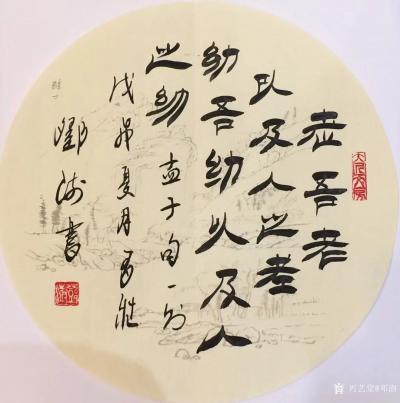 老吾老
以及人之老
幼吾幼以及人
之幼 孟子句一则
戊戌夏月
鄧 書
兴艺堂@邓